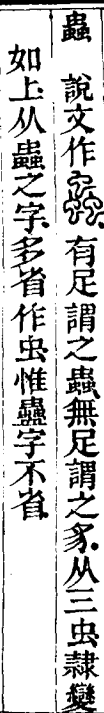 蟲 說文作有足謂之蟲無足謂之豸从三虫隸變
如上从蟲之字多省作虫惟蠱字不省